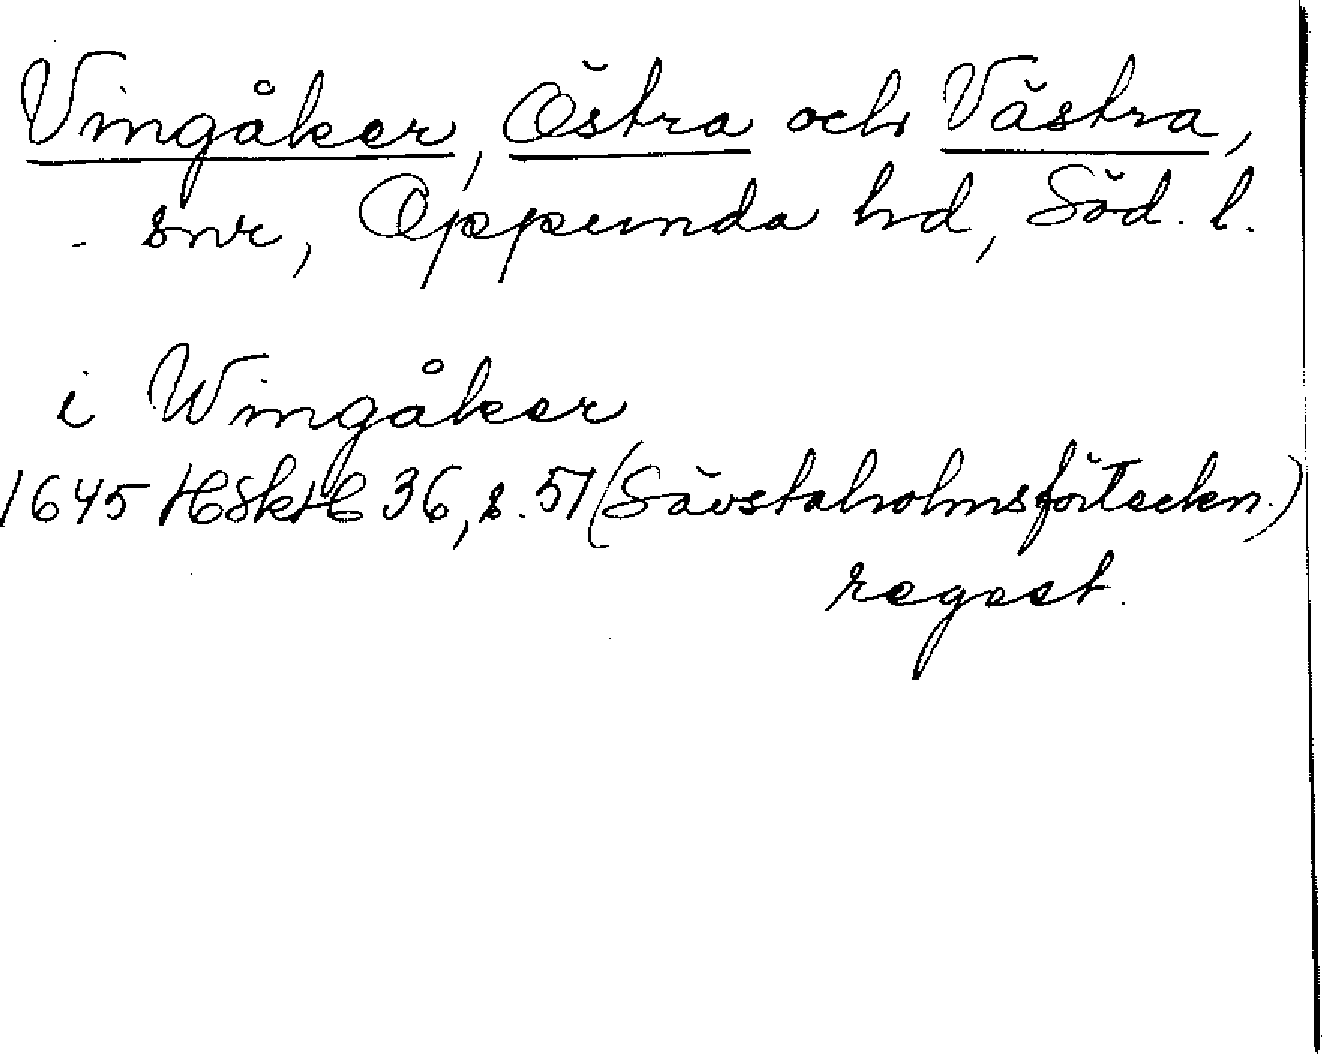 Vingåker, Östra och Västra,
snr, Oppunda hd, Söd. l.
i Wingåker
1645 HSkH 36, s. 51 (Sävstaholmsförteckn.)
regest.